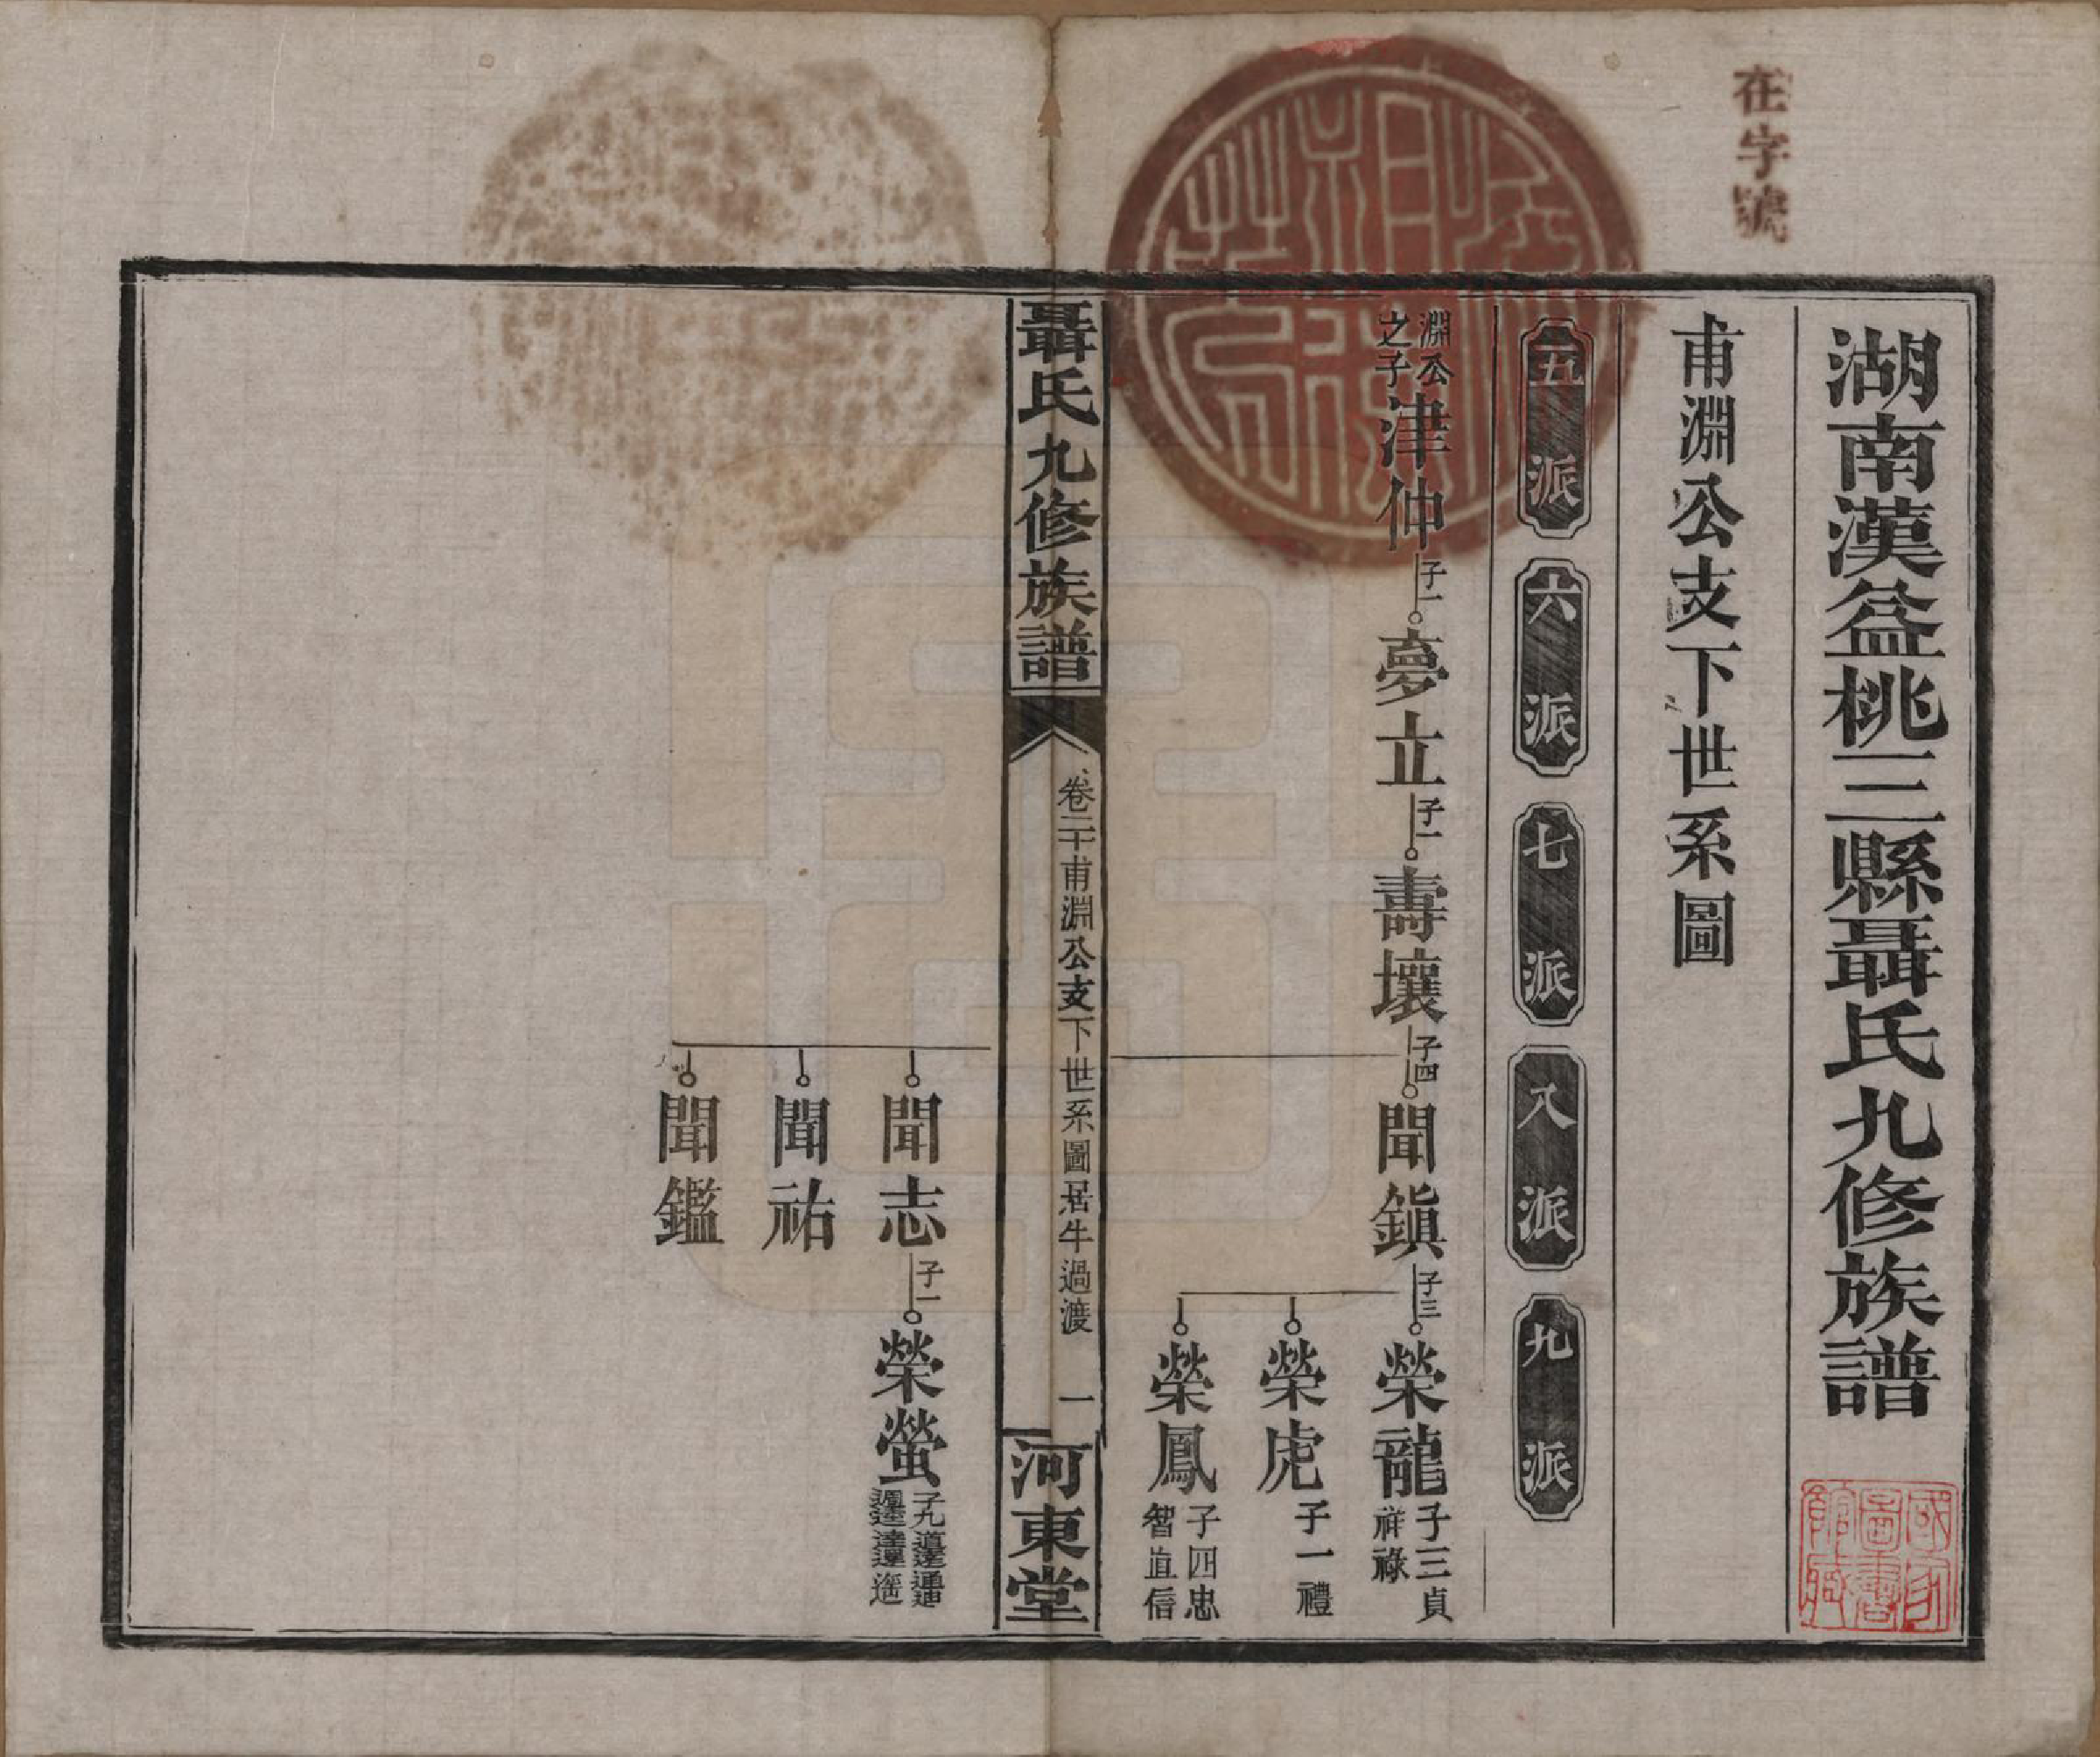 在字號
湖南漢益桃三縣聶氏九修族譜
甫淵公支下世系圖
五派 六派 七派 八派 九派
淵公之子 津仲 子一 夢立 子一 壽壤 子四 聞鎮 子三 榮龍 子三貞祥祿
榮虎 子一禮
榮鳳 子四忠智直信
聶氏九修族譜 卷二十甫淵公支下世系圖居牛過渡 一 河東堂
聞志 子一 榮螢 子九道
聞祐
聞鑑
國家圖書館藏